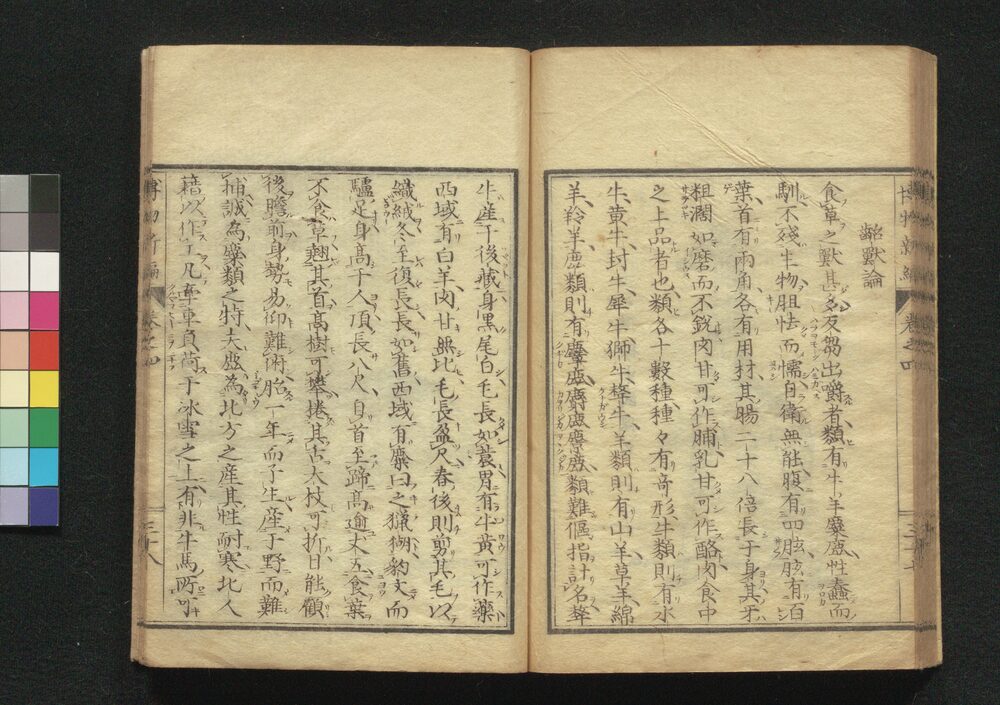 齝獸論
食草之獸甚多反芻出嚼者類有牛羊麋鹿性蠢而
馴不殘生物胆怯而懦自衛無能腹有四胘胘有百
葉首有兩角各有用扸其腸二十八倍長于身其牙
粗濶如磨而不銳肉甘可作脯乳甘可作酪肉食中
之上品者也類各十數種種々有奇形牛類則有水
牛黄牛封牛犀牛獅牛犛牛羊類則有山羊草羊綿
羊羚羊鹿類則有麞麈麝麀麖麋類難傴指計名犛
牛産于後藏身黒尾白毛長如蓑胃有牛黄可作藥
西域有白羊肉甘無比毛長盈尺春後則剪其毛以
織絨冬至復長長如舊西域有麋曰之獵猢豹文而
驢足身高于人頂長八尺身首至蹄高逾丈五食葉
不食草翹其首高樹可攀捲其舌大枝可折目能顧
後瞻前身勢易仰難俯胎一年而子生産于野而難
捕誠為麋類之特大鹿為北方之産其性耐寒北人
藉以作
凡牽車負荷于冰雪之上有非牛馬所可
博物新編 卷之四
三十八